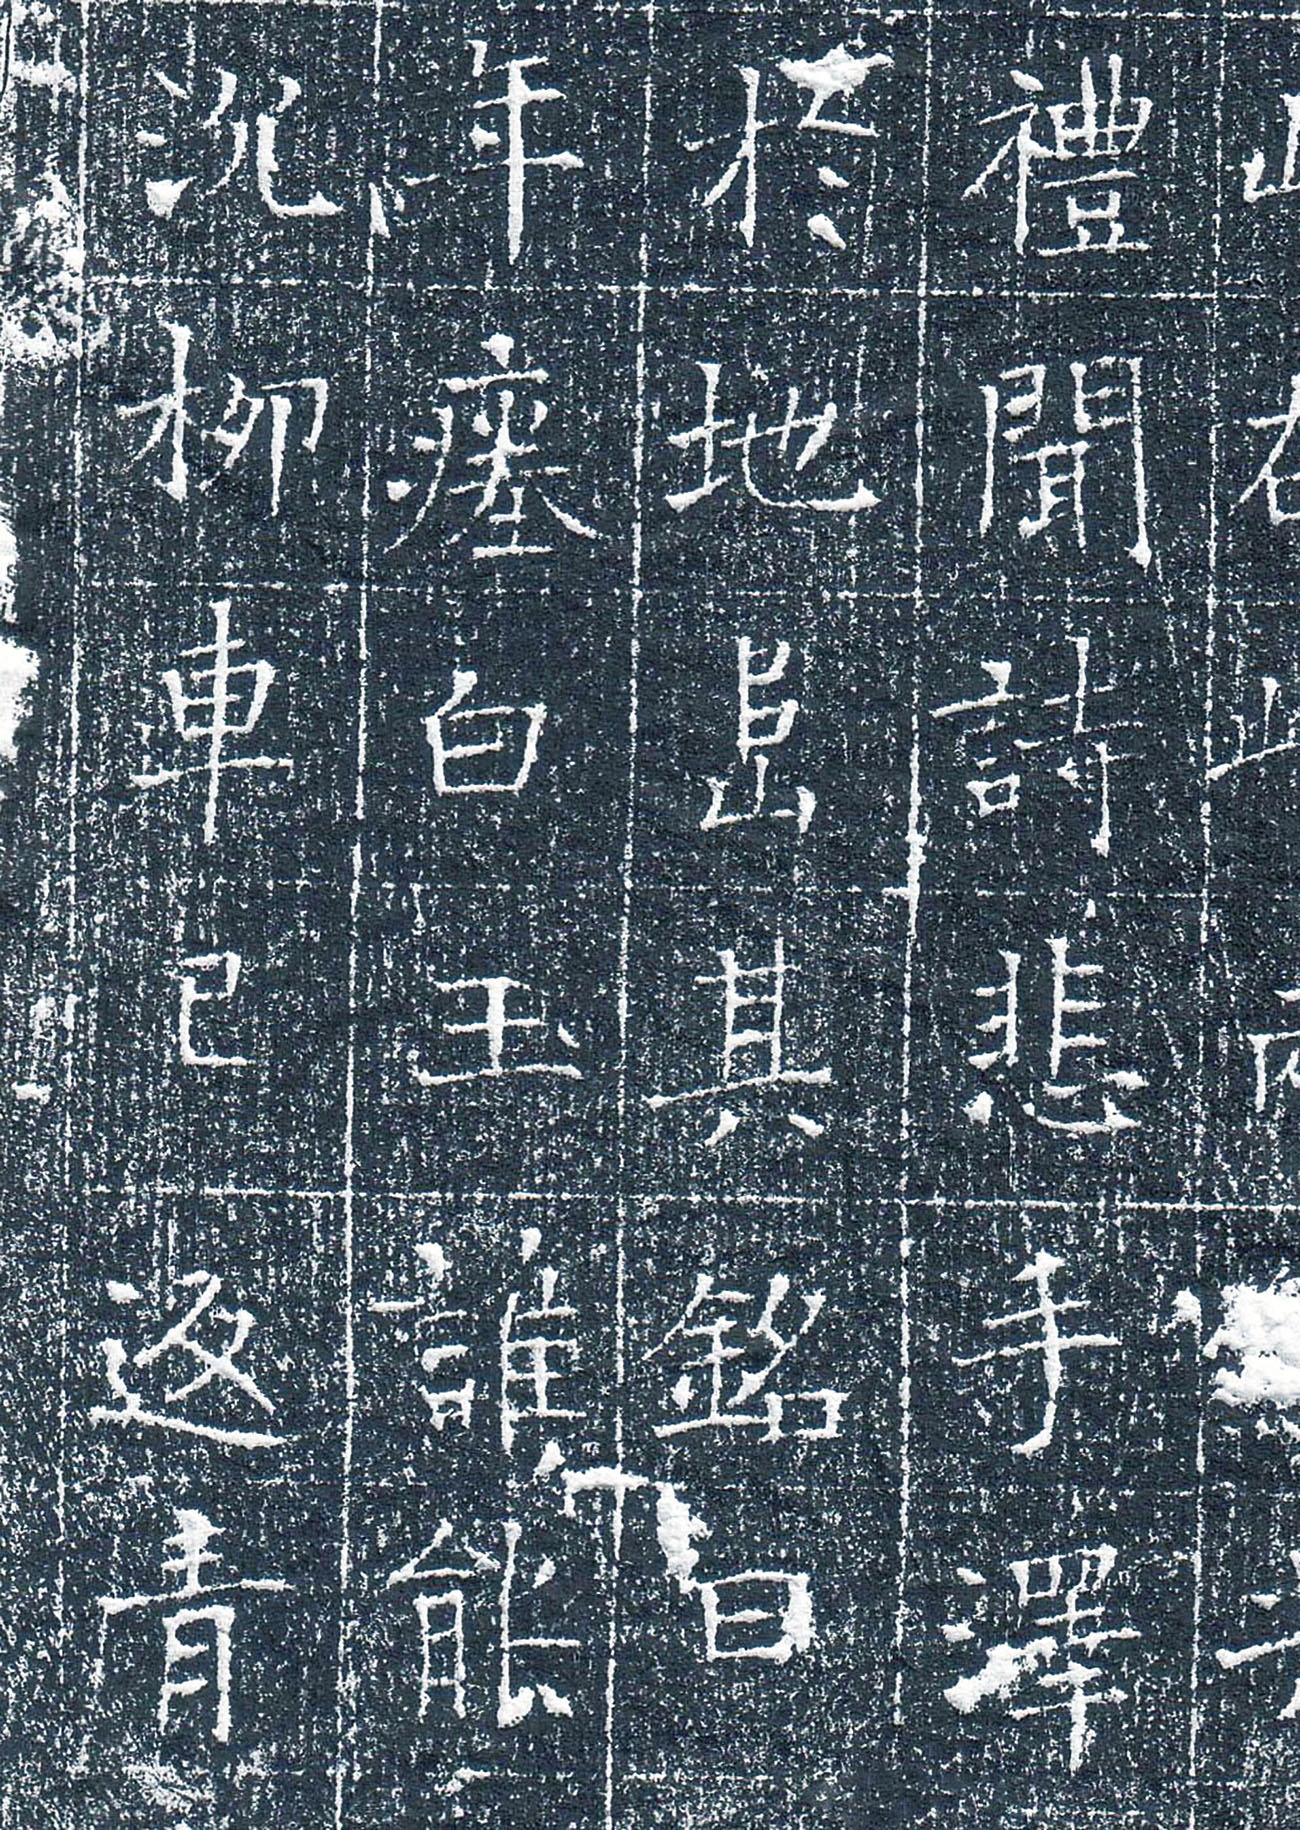 禮聞詩悲手澤
於地峊其銘曰
年瘞白玉誰能
柳車已返青